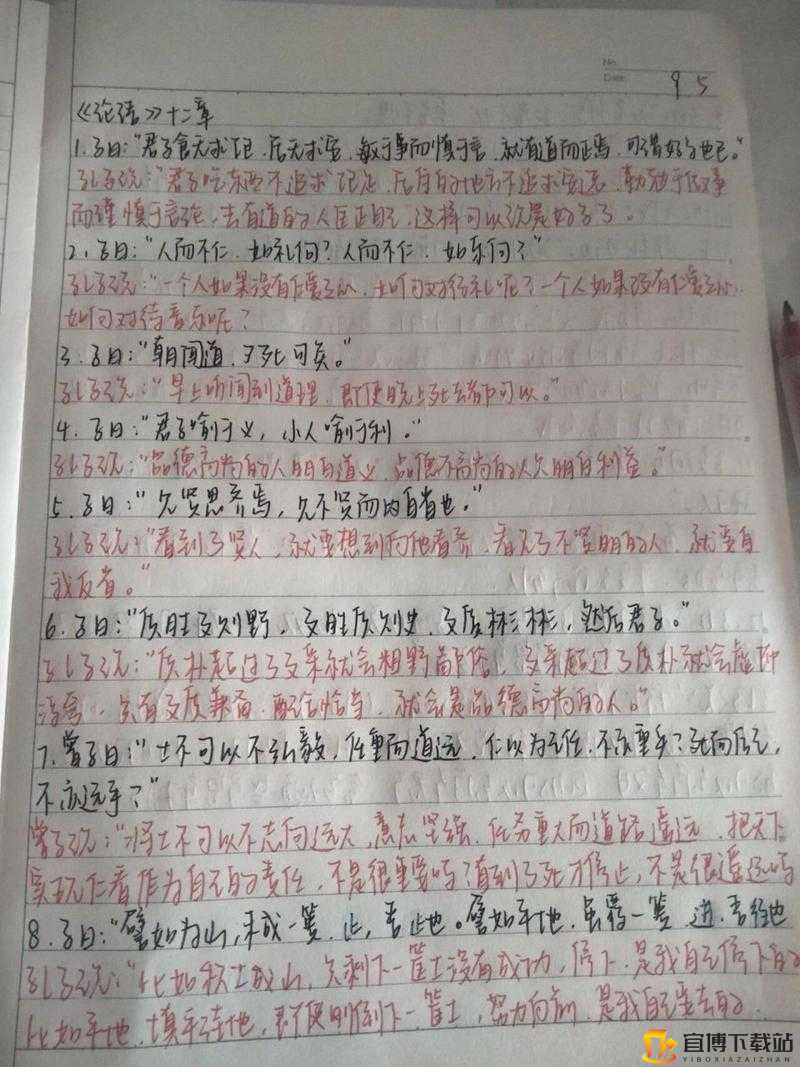 No.
Date. 9 5
《论语》十二章
1.子曰:“君子食无求饱,居无求安,敏于事而慎于言,就有道而正焉,可谓好学也已。”
孔子说:“君子吃东西不追求饱足,居住的地方不追求安适,勤劳于做事
而谨慎于言论,去有道的人匡正自己,这样可以说是好学了。
2.子曰:“人而不仁,如礼何?人而不仁,如乐何?”
孔子说:“一个人如果没有仁爱之心,如何对待礼呢?一个人如果没有仁爱之心
如何对待音乐呢?
3.子曰:“朝闻道,夕死可矣。”
孔子说:“早上听闻到道理,即使晚上死去都可以。”
4.子曰:“君子喻于义,小人喻于利。”
孔子说:“品德高尚的人明白道义,品德不高尚的人只明白利益。”
5.子曰:“见贤思齐焉,见不贤而内自省也。”
孔子说:“看到了贤人,就要想到向他看齐,看见了不贤明的人,就要自
我反省。”
6.子曰:“质胜文则野,文胜质则史,文质彬彬,然后君子。”
孔子说:“质朴超过了文采就会粗野鄙俗,文采超过了质朴就会虚饰
浮夸,只有文质兼备,配合恰当,就会是品德高尚的人。”
7.曾子曰:“士不可以不弘毅,任重而道远,仁以为己任,不亦重乎?死而后已,
不亦远乎?”
曾子说:“将士不可以不志向远大,意志坚强,任务重大而道路遥远,把天下
实现仁看作为自己的责任,不是很重要吗?直到了死才停止,不是很遥远吗
8.子曰:“譬如为山,未成一篑,止,吾止也。譬如平地,虽覆一篑,进,吾往也
孔子说:“比如积土成山,只剩下一筐土没有成功,停下,是我自己停下的
比如平地,填平洼地,即使刚倒下一筐土,努力向前,是我自己要去的.
宜博下载站
YIBOXIAZAIZHAN.COM